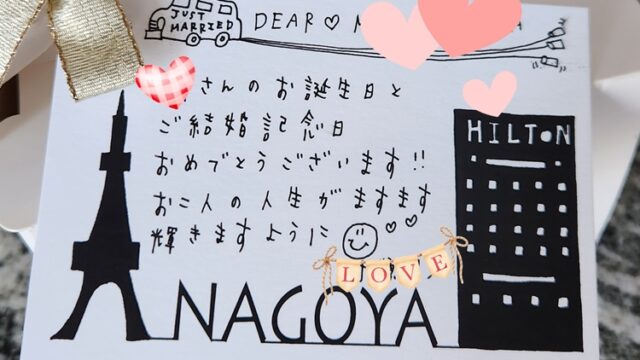 JUST MARRIED
DEAR♡
さんのお誕生日と
ご結婚記念日
おめでとうございます!!
お二人の人生がますます
輝きますように
HILTON
LOVE
NAGOYA